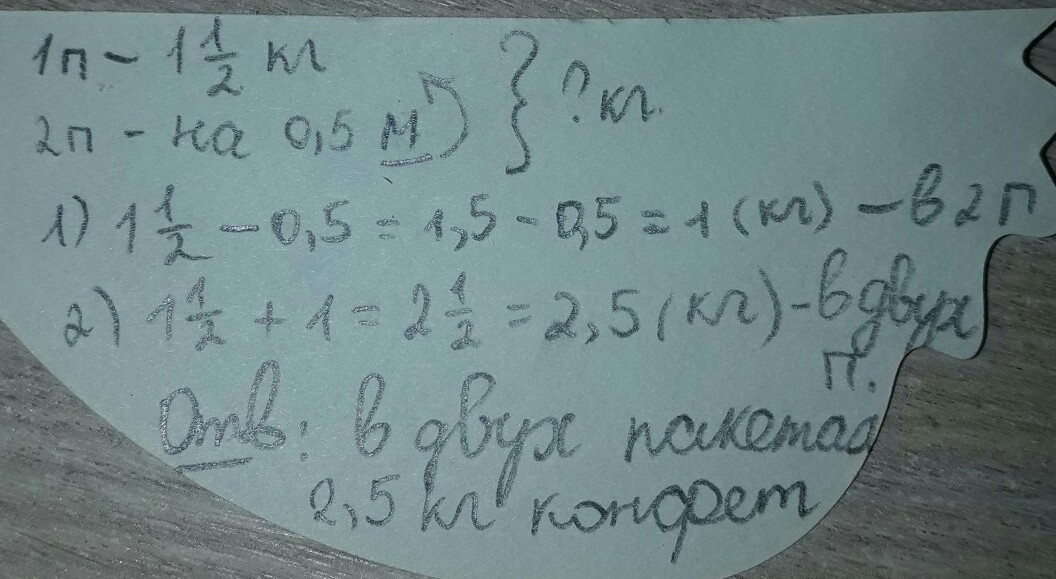 1п - 1 1/2 кг
2п - на 0,5 м } ? кг.
1) 1 1/2 - 0,5 = 1,5 - 0,5 = 1 (кг) - в 2 п
2) 1 1/2 + 1 = 2 1/2 = 2,5 (кг) - в двух
п.
Отв: в двух пакетах
2,5 кг конфет